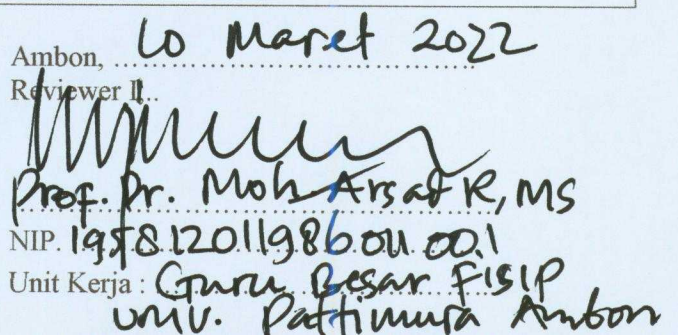 Ambon, 10 Maret 2022
Reviewer I
Prof. Dr. Moh Arsad R, MS
NIP. 195812011986011.00.1
Unit Kerja : Guru Besar FISIP
Univ. Pattimura Ambon